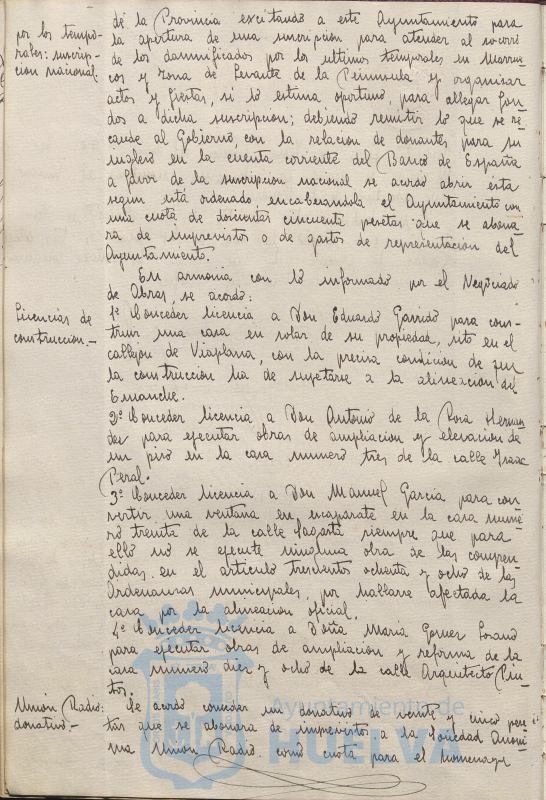 de la Provincia excitando a este Ayuntamiento para
por los tempo-
rales: suscrip-
cion nacional
la apertura de una suscripcion para atender al socorro
de los damnificados por los ultimos temporales en Marrue-
cos y zona de Levante de la Peninsula y organizar
actos y fiestas, si lo estima oportuno, para allegar fon-
dos a dicha suscripcion; debiendo remitir lo que se re-
caude al Gobierno, con la relacion de donantes para su
ingreso en la cuenta corriente del Banco de España
a favor de la suscripcion nacional se acordó abrir ésta
segun está ordenado, encabezandola el Ayuntamiento con
una cuota de doscientas cincuenta pesetas que se abona-
ra de imprevistos o de gastos de representacion del
Ayuntamiento.
En armonia con lo informado por el Negociado
de Obras, se acordo:
Licencias de
construccion.-
1º Conceder licencia a Don Eduardo Garrido para cons-
truir una casa en solar de su propiedad, sito en el
callejon de Viaplana, con la precisa condicion de que
la construccion ha de sujetarse a la alineacion del
Ensanche.
2º Conceder licencia a Don Antonio de la Rosa Hernan-
dez para ejecutar obras de ampliacion y elevacion de
un piso en la casa numero tres de la calle Isaac
Peral.
3º Conceder licencia a Don Manuel Garcia para con-
vertir una ventana en escaparate en la casa nume-
ro treinta de la calle Sagasta siempre que para
ello no se ejecute ninguna obra de las compren-
didas en el articulo trescientos ochenta y ocho de las
Ordenanzas municipales, por hallarse afectada la
casa por la alineacion oficial.
4º Conceder licencia a Doña Maria Gomez Lozano
para ejecutar obras de ampliacion y reforma de la
casa numero diez y ocho de la calle Arquitecto Pin-
to.
Union Radio:
donativo.-
Se acordo conceder un donativo de veinte y cinco pese-
tas que se abonara de imprevistos a la Sociedad Anoni-
ma Union Radio como cuota para el homenaje
Ayuntamiento de
HUELVA